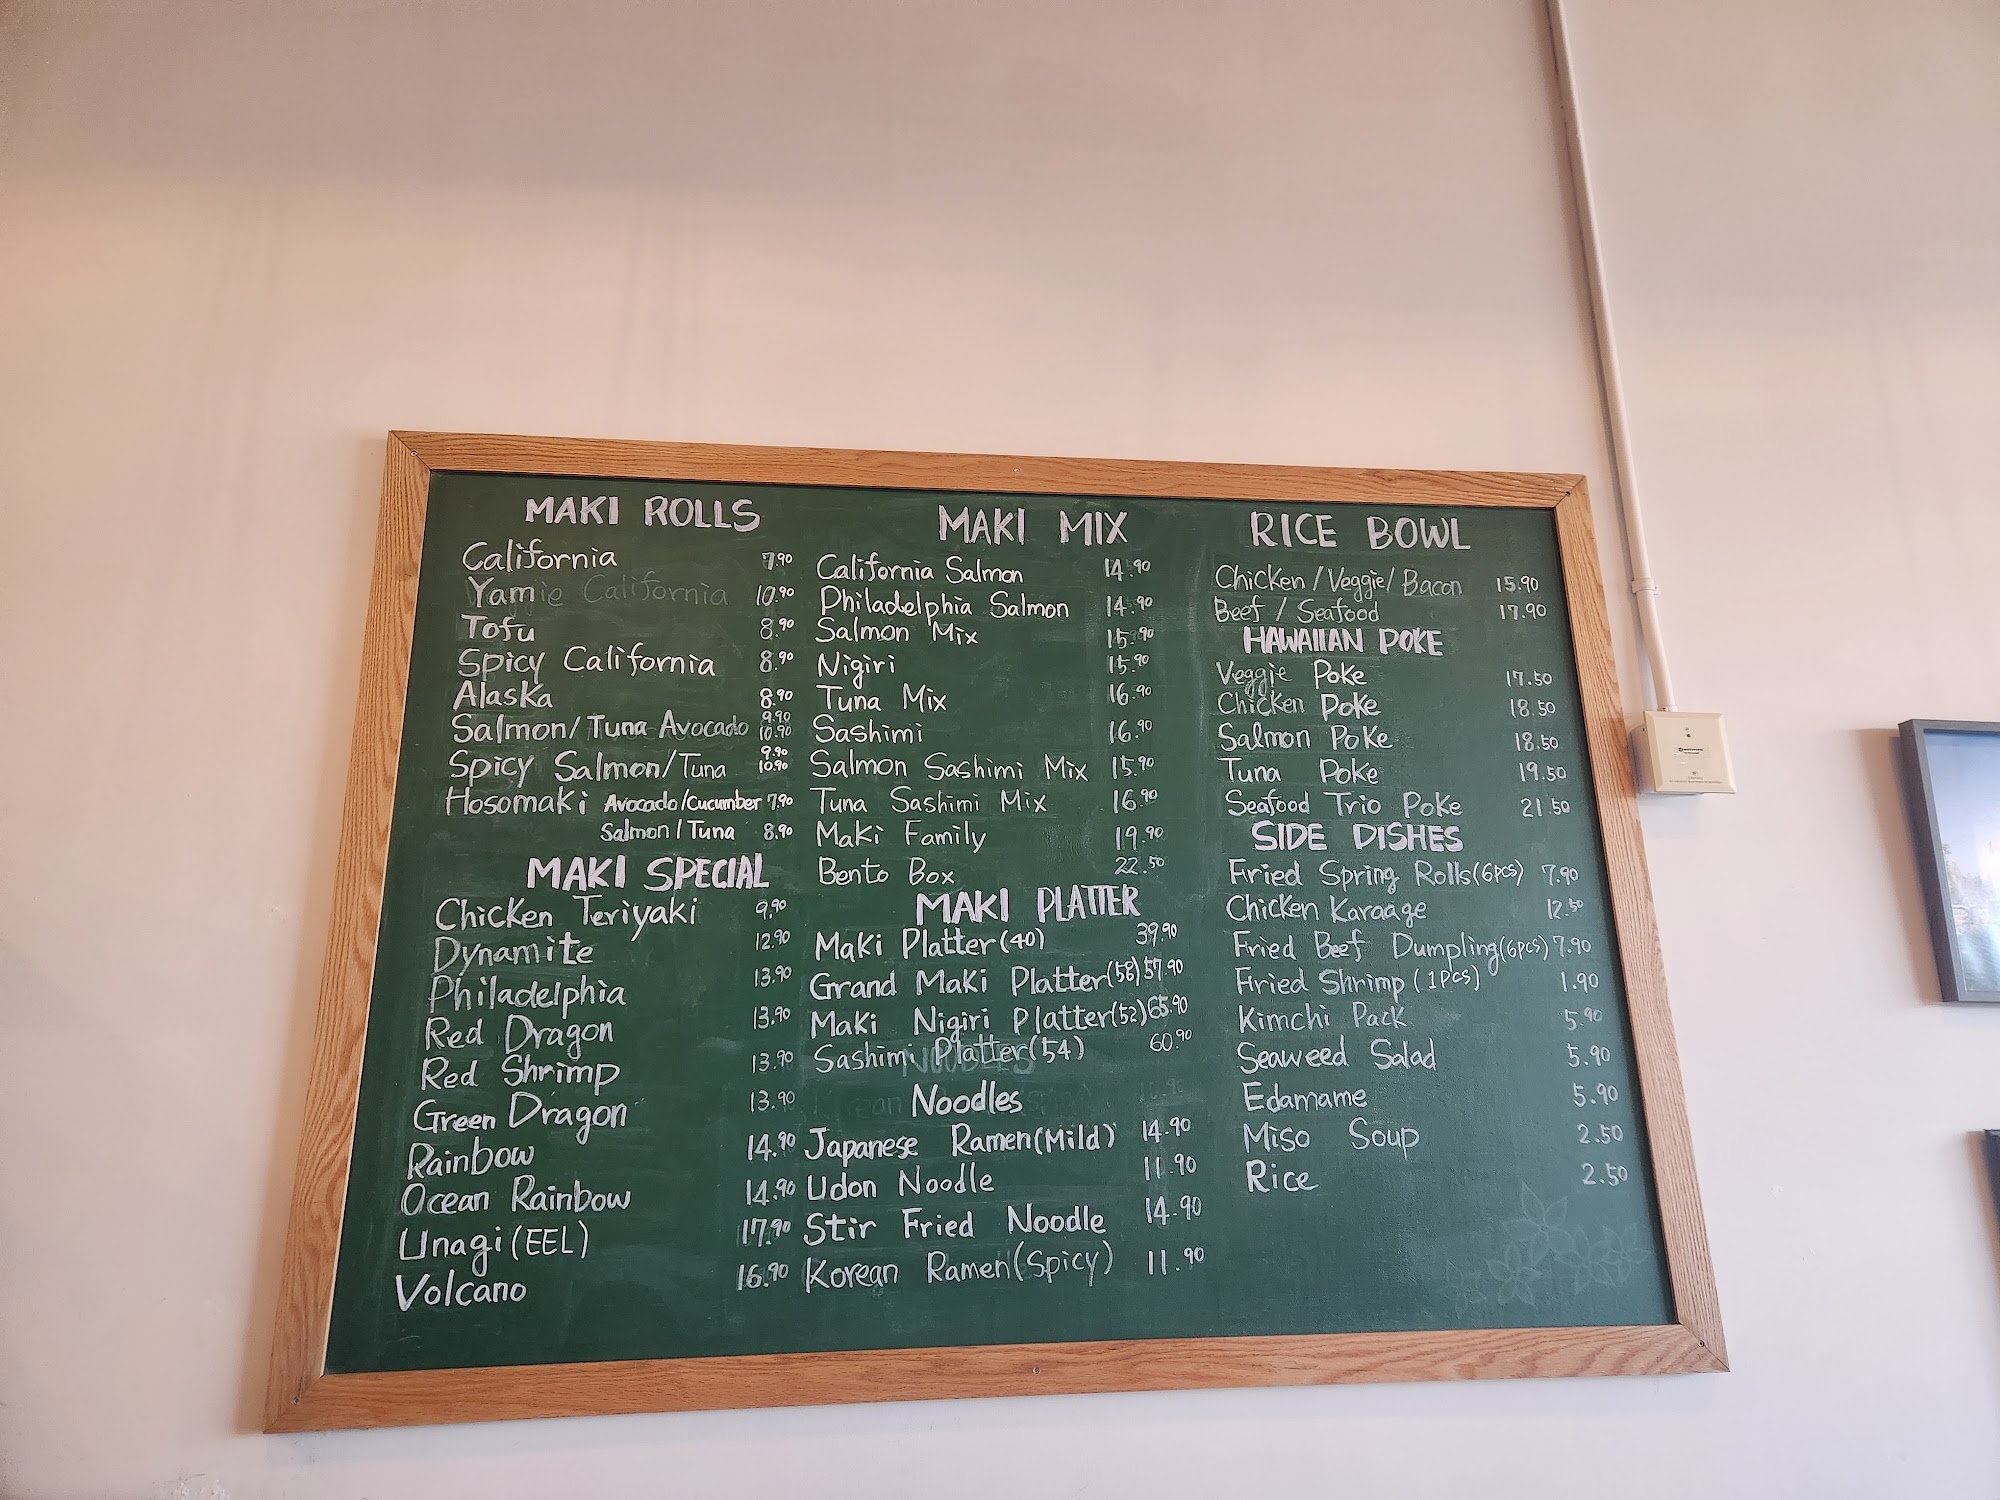 MAKI ROLLS
California 7.90
Yam 10.90
Tofu 8.90
Spicy California 8.90
Alaska 8.90
Salmon/Tuna Avocado 9.90 10.90
Spicy Salmon/Tuna 9.90 10.90
Hosomaki Avocado/Cucumber 7.90
Salmon/Tuna 8.90
MAKI SPECIAL
Chicken Teriyaki 9.90
Dynamite 12.90
Philadelphia 13.90
Red Dragon 13.90
Red Shrimp 13.90
Green Dragon 13.90
Rainbow 14.90
Ocean Rainbow 14.90
Unagi (EEL) 17.90
Volcano 16.90
MAKI MIX
California Salmon 14.90
Philadelphia Salmon 14.90
Salmon Mix 15.90
Nigiri 15.90
Tuna Mix 16.90
Sashimi 16.90
Salmon Sashimi Mix 15.90
Tuna Sashimi Mix 16.90
Maki Family 19.90
Bento Box 22.50
MAKI PLATTER
Maki Platter (40) 39.90
Grand Maki Platter (58) 57.90
Maki Nigiri Platter (52) 65.90
Sashimi Platter (54) 60.90
Noodles
Japanese Ramen (Mild) 14.90
Udon Noodle 11.90
Stir Fried Noodle 14.90
Korean Ramen (Spicy) 11.90
RICE BOWL
Chicken / Veggie / Bacon 15.90
Beef / Seafood 17.90
HAWAIIAN POKE
Veggie Poke 17.50
Chicken Poke 18.50
Salmon Poke 18.50
Tuna Poke 19.50
Seafood Trio Poke 21.50
SIDE DISHES
Fried Spring Rolls (6pcs) 7.90
Chicken Karaage 12.50
Fried Beef Dumpling (6pcs) 7.90
Fried Shrimp (1pcs) 1.90
Kimchi Pack 5.90
Seaweed Salad 5.90
Edamame 5.90
Miso Soup 2.50
Rice 2.50